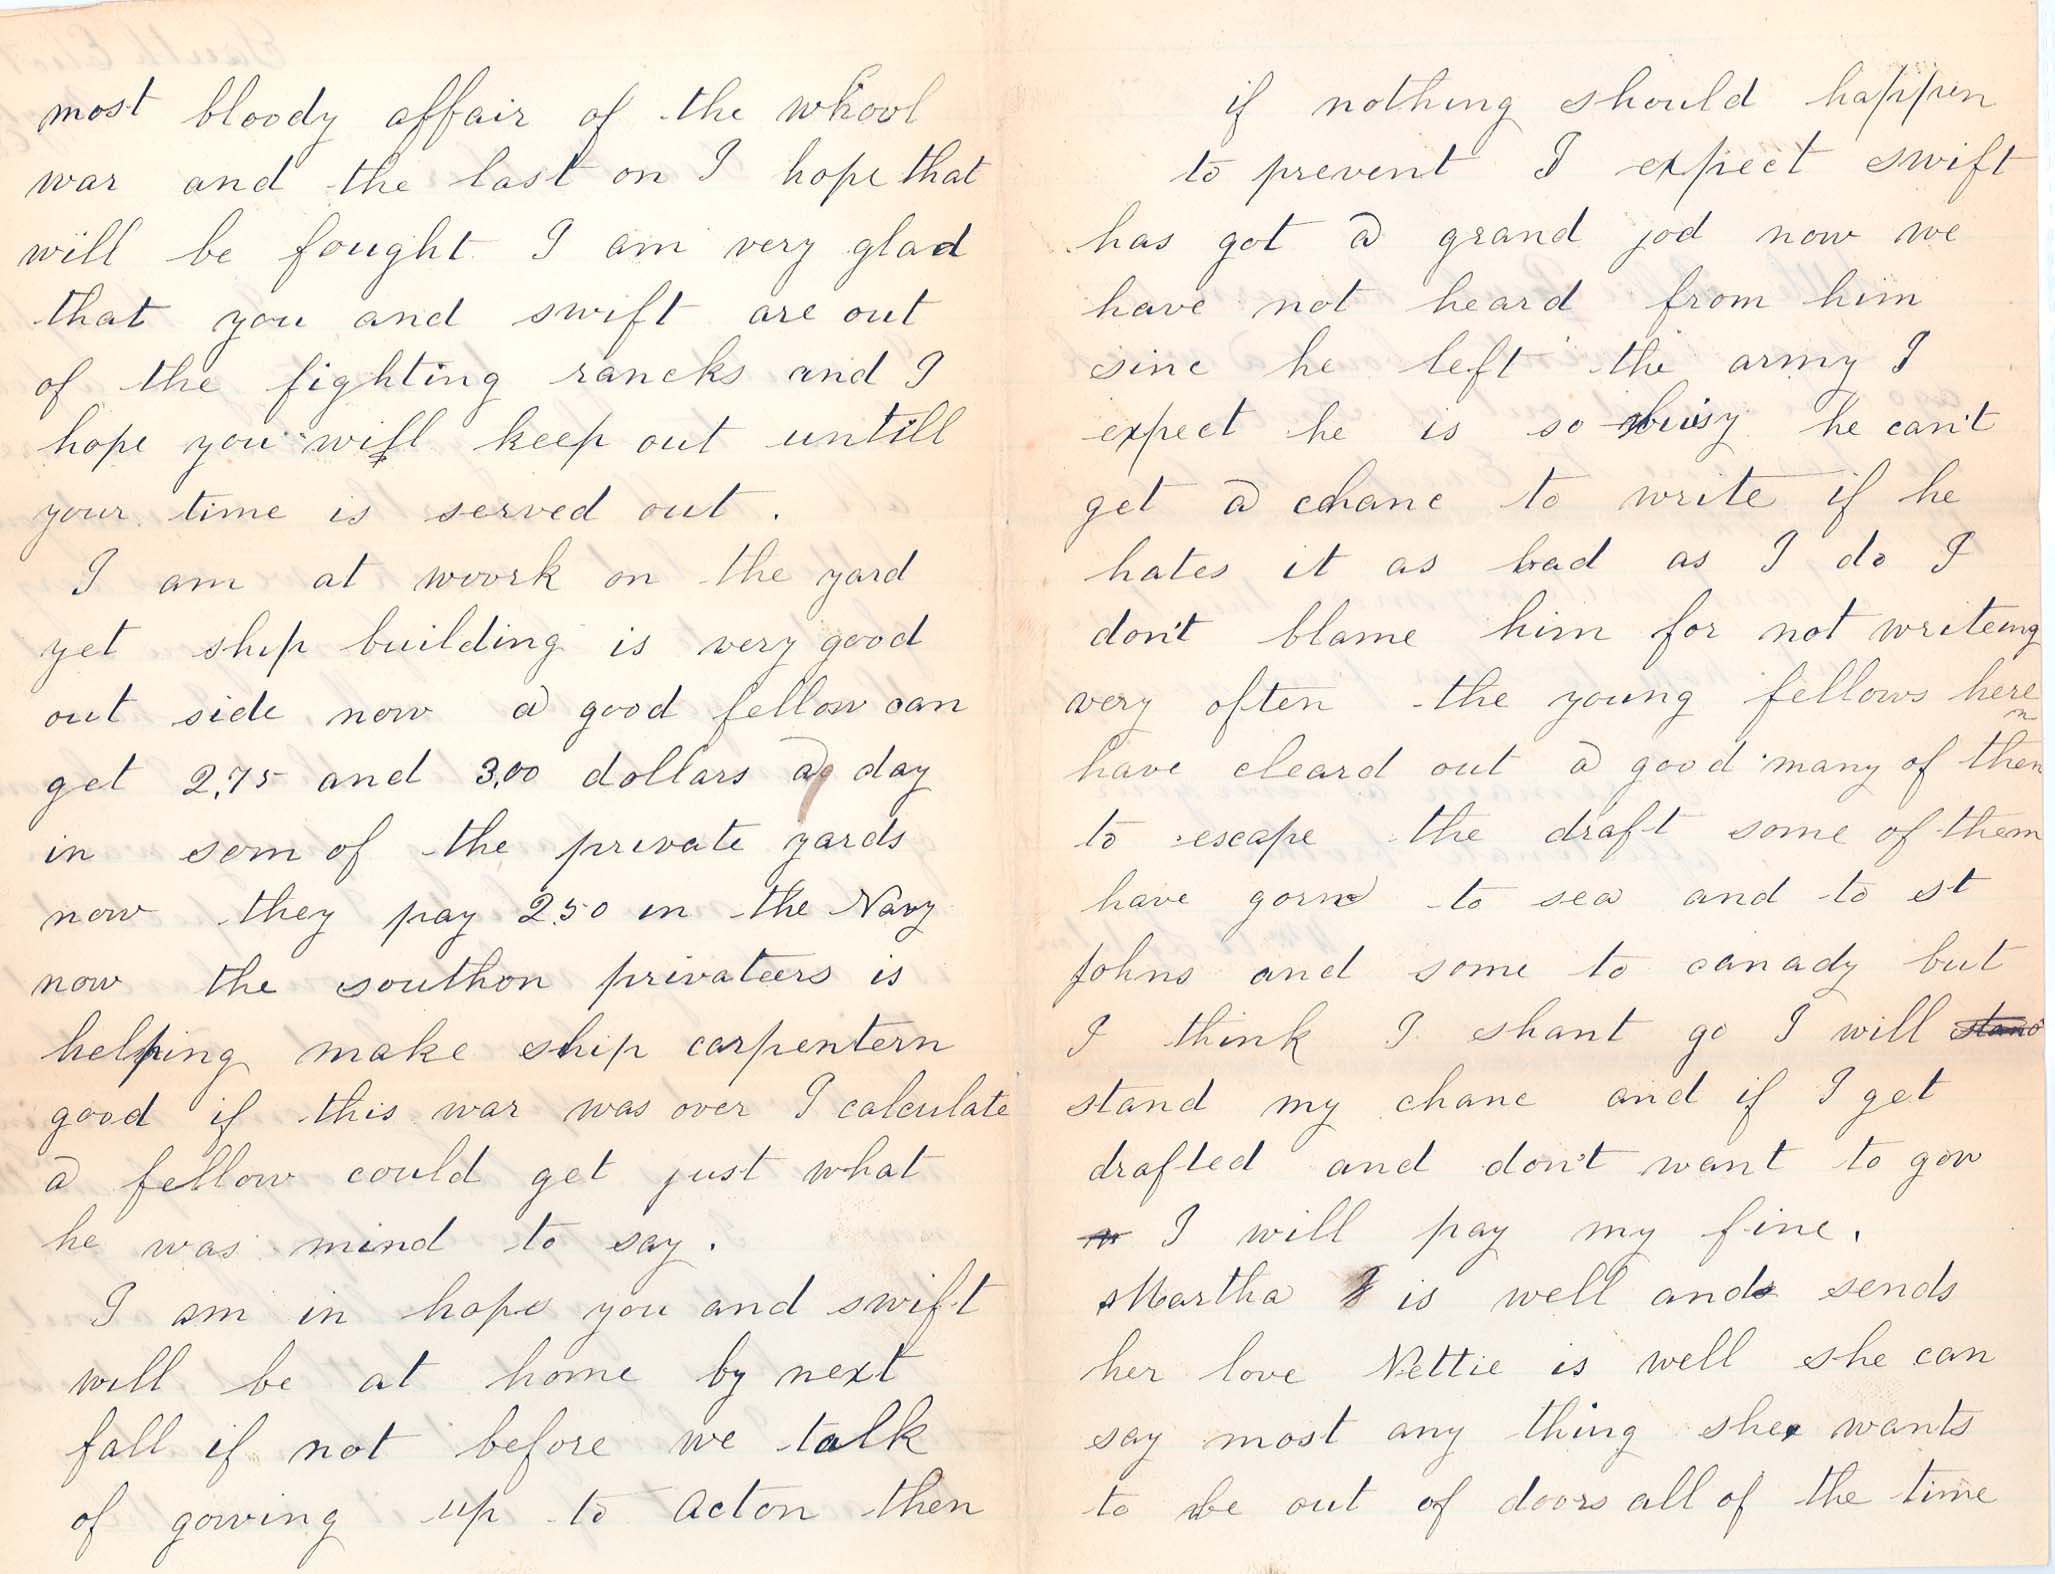 most bloody affair of the whool
war and the last on I hope that
will be fought I am very glad
that you and swift are out
of the fighting rancks and I
hope you will keep out untill
your time is served out .
I am at woork on the yard
yet ship building is very good
out side now a good fellow can
get 2,75 and 3,00 dollars a day
in som of the private yards
now they pay 2.50 in the Navy
now the southon privateers is
helping make ship carpentern
good if this war was over I calculate
a fellow could get just what
he was mind to say .
I am in hops you and swift
will be at home by next
fall if not before we talk
of gowing up to Acton then
if nothing should happin
to prevent I expect swift
has got a grand jod now we
have not heard from him
sinc he left the army I
expect he is so buisy he can't
get a chanc to write if he
hates it as bad as I do I
don't blame him for not writeing
very often the young fellows here
have cleard out a good many of then
to escape the draft some of them
have gorne to sea and to st
Johns and some to canady but
I think I shant go I will stand
stand my chanc and if I get
drafted and don't want to gow
I will pay my fine .
Martha is well and sends
her love Nettie is well she can
say most any thing she wants
to be out of doors all of the time